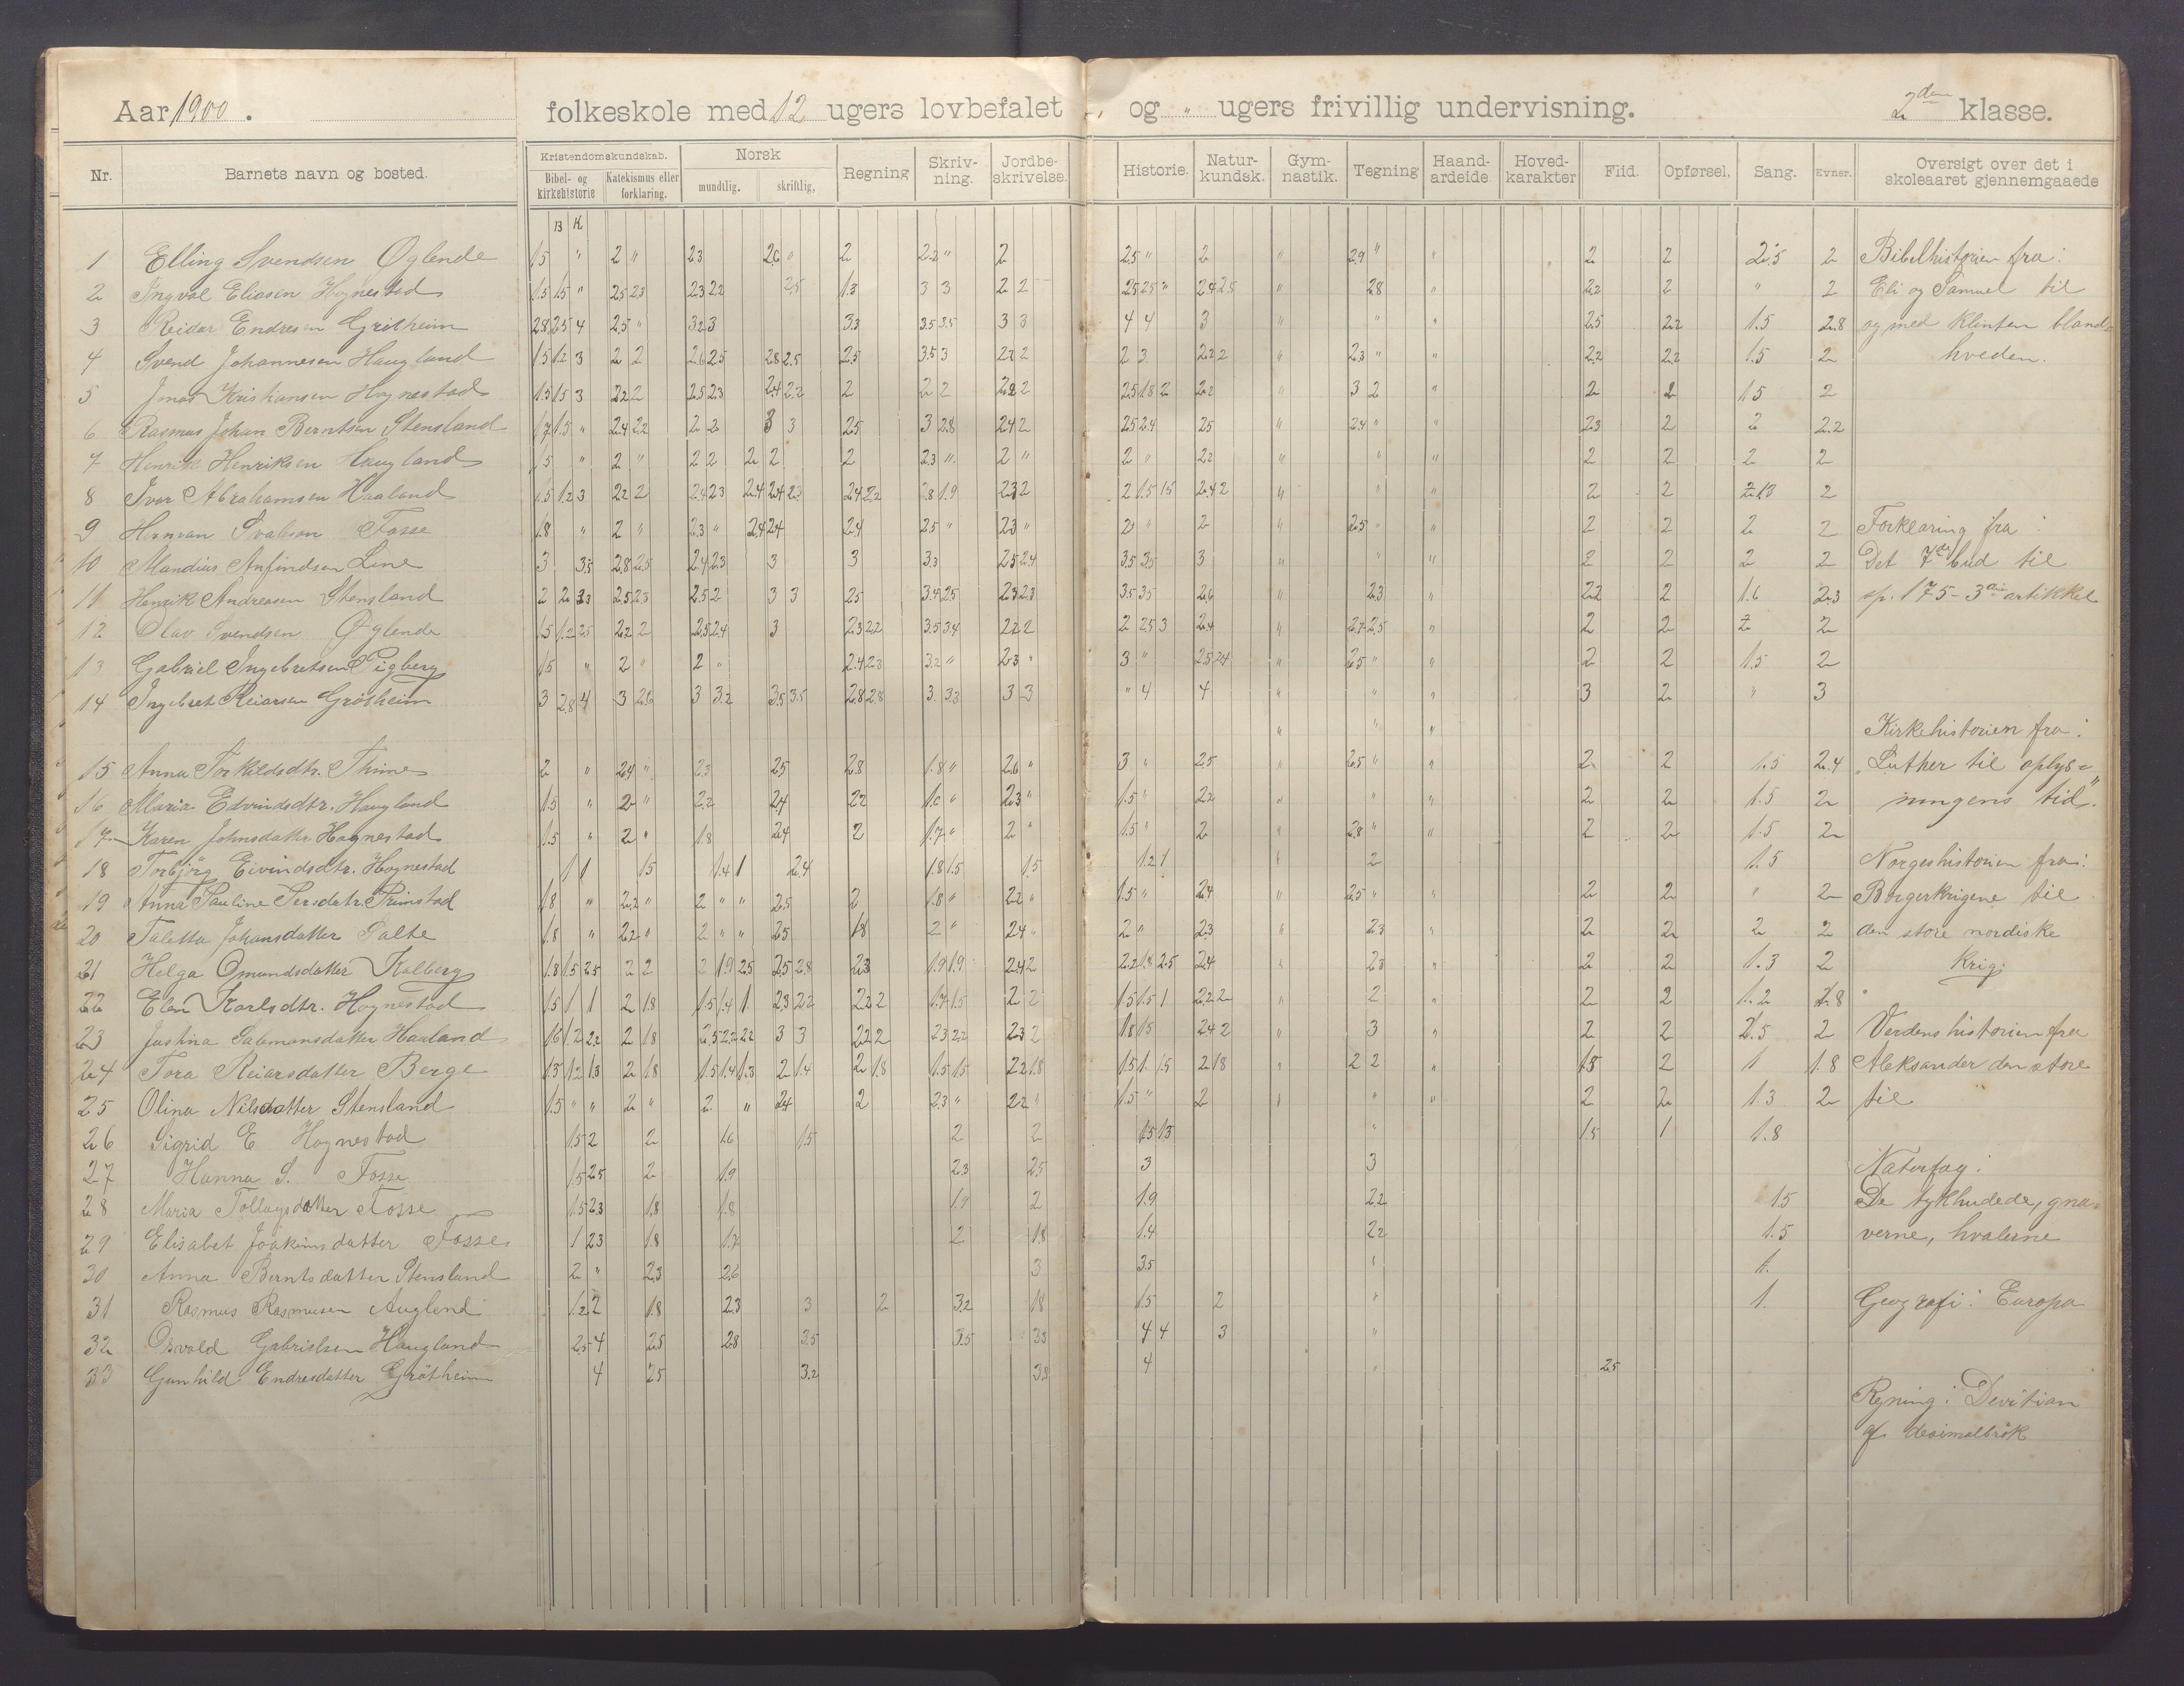 Aar 1900. folkeskole med 12 ugers lovbefalet, og " ugers frivillig undervisning. 2den klasse.
Nr. Barnets navn og bosted. Kristendomskundskab. Bibel- og kirkehistorie Katekismus eller forklaring. Norsk mundtlig. skriftlig, Regning Skrivning. Jordbeskrivelse. Historie. Naturkundsk. Gymnastik. Tegning Haandardeide Hovedkarakter Flid. Opførsel. Sang. Evner. Oversigt over det i skoleaaret gjennemgaaede
B K
1 Elling Svendsen Øglende 1.5 " 2 " 2.3 2.6 " 2 2.2 " 2 2.5 " 2 " 2.9 " " 2 2 2.5 2 Bibelhistorien fra:
2 Ingval Eliasen Hognestad 1.5 1.5 " 2.5 2.3 2.3 2.2 2.5 1.3 3 3 2 2 2.5 2.5 " 2.4 2.5 " 2.8 " 2.2 2 " 2 Eli og Samuel til
3 Reidar Endresen Grötheim 2.8 2.5 4 2.5 " 3.2 3 3.3 3.5 3.5 3 3 4 4 3 " " " 2.5 2.2 1.5 2.8 og med klinten bland
4 Svend Johannesen Haugland 1.5 1.2 3 2 2 2.6 2.5 2.8 2.5 2.5 3.5 3 2.2 2 2 3 2.2 2 " 2.3 " " 2.2 2.2 1.5 2 hveden.
5 Jonas Kristiansen Hognestad 1.5 1.5 3 2.2 2 2.5 2.3 2.4 2.2 2 2 2 2.2 2 2.5 1.8 2 2.2 " 3 2 " 2 2 1.5 2
6 Rasmus Johan Berntsen Stensland 1.7 1.5 " 2.4 2.2 2 2 3 3 2.5 3 2.8 2.4 2 2.5 2.4 2.5 " 2.4 " " 2.3 2 2 2.2
7 Henrik Henriksen Haugland 1.5 " 2 " 2 2 2 2 2 2.3 " 2 " 2 " 2.2 " " " 2 2 2 2
8 Ivar Abrahamsen Haaland 1.5 1.2 3 2.2 2 2.4 2.3 2.4 2.4 2.3 2.4 2.2 2.8 1.9 2.3 2 2 1.5 1.5 2.4 2 " " " 2 2 2
9 Herman Fosse 1.8 " 2 " 2.3 " 2.4 2.4 2.4 2.5 " 2.3 " 2 " 2 " 2.5 " " 2 2 2 2 Forklaring fra:
10 Mandius Anfindsen Line 3 3.5 2.8 2.5 2.4 2.3 3 3 3.3 2.5 2.4 3.5 3.5 3 " " 2 2 2 2 Det 7de bud til
11 Henrik Andreasen Stensland 2 2.5 2.3 2.5 2 3 3 2.5 3.4 2.5 2.3 2.3 3.5 3.5 2.6 " 2.3 " 2.2 2 1.6 2.3 sp. 175 - 3die artikkel
12 Olav Svendsen Øglende 1.5 1.2 2.5 2.2 2 2.5 2.4 3 2.3 2.2 3.5 3.4 2.2 2 2 2.5 3 2.4 " 2.7 2.5 " 2 2 2 2
13 Gabriel Ingebretsen Sigberg 1.5 " 2 " 2 " 2.4 2.3 3.2 " 2.3 " 3 " 2.5 2.4 " 2.5 " " 2 2 1.5 2
14 Ingebret Reiarsen Grötheim 3 2.8 4 3 2.6 3 3.2 3.5 3.5 2.8 2.8 3 3.3 3 3 " 4 4 " " " 3 2 " 3
" " " Kirkehistorien fra:
15 Anna Torkildsdtr. Thime 2 " 2.4 " 2.3 2.5 2.8 1.8 " 2.6 " 3 " 2.5 " 2.5 " " 2 2 1.5 2.4 "Luther til oplys=
16 Maria Edvindsdtr. Haugland 1.5 " 2 " 2.2 2.4 2.2 1.6 " 2.3 " 1.5 " 2.2 " " " 2 2 1.5 2 ningens tid".
17 Karen Johnsdatter Hognestad 1.5 " 2 " 1.8 2.4 2 1.7 " 2 " 1.5 " 2 " 2.8 " " 2 2 1.5 2
18 Torbjörg Eivindsdtr. Hognestad 1 1 1.5 1.4 1 2.4 1.8 1.5 1.5 1.2 1 " 2 1.5 Norgeshistorien fra:
19 Anna Pauline Persdatr. Primstad 1.8 " 2.2 " 2 " " 2.5 2 1.8 " 2.2 " 1.5 " 2.4 " 2.5 " " 2 2 " 2 Borgerkrigene til
20 Taletta Johansdatter Salte 1.8 " 2.2 " 2 " " 2.5 1.8 2 " 2.4 " 2 " 2.3 " 2.3 " 2 2 2 2 den store nordiske
21 Helga Omundsdatter Kalberg 1.8 1.5 2.5 2 2 2 1.9 2.5 2.5 2.8 2.3 1.9 1.9 2.4 2 2.2 1.8 2.5 2.4 " 2.3 " 2 2 1.3 2 krig.
22 Elen Karlsdtr. Hognestad 1.5 1 1 2 1.8 1.5 1.4 1 2.3 2.2 2.2 2 1.7 1.5 2 2 1.5 1.5 1 2.2 2 " 2 " 2 2 1.2 1.8
23 Justina Salamonsdatter Haaland 1.6 1.2 2.2 2 1.8 2.5 2.2 2.2 3 3 2.2 2 2.3 2.2 2.3 2 1.8 1.5 2.4 2 " 3 " 2 2 2.5 2 Verdenshistorien fra
24 Tora Reiarsdatter Berge 1.3 1.2 1.3 2 1.8 1.5 1.4 1.3 2 1.4 2 1.8 1.5 1.5 2.2 1.8 1.5 1. 1.5 2 1.8 " 2 2 " 1.8 2 1 1.8 Aleksander den store
25 Olina Nilsdatter Stensland 1.5 " " 2 " 2 " 2.4 2 2.3 " 2.2 " 1.5 " 2 " " " 2 2 1.3 2 til
26 Sigrid E Hognestad 1.5 2 2 1.6 1.5 2 2 1.5 1.3 " 1.5 1 1.8
27 Hanna S. Fosse 1.5 2.5 2 1.9 2.3 2.5 3 3 Naturfag:
28 Maria Tollagsdatter Fosse 1.5 2.3 1.8 1.8 1.9 2 1.9 2.2 1.5 De tykhudede, gna=
29 Elisabet Joakimsdatter Fosse 1 2.3 1.8 1.7 2 1.8 1.4 2.2 1.5 verne, hvalerne
30 Anna Berntsdatter Stensland 2 " 2.3 2.6 3 3.5 " 1.
31 Rasmus Rasmusen Auglend 1.2 2 1.8 2.3 3 2 3.2 1.8 1.5 2 " 1. Geografi: Europa
32 Osvald Gabrielsen Haugland 2.5 4 2.5 2.8 3.5 3.5 3.3 4 4 3 "
33 Gunhild Endresdatter Grötheim 4 2.5 3.2 3.3 4 " 2.5
Regning: Devitian
af desimalbrök